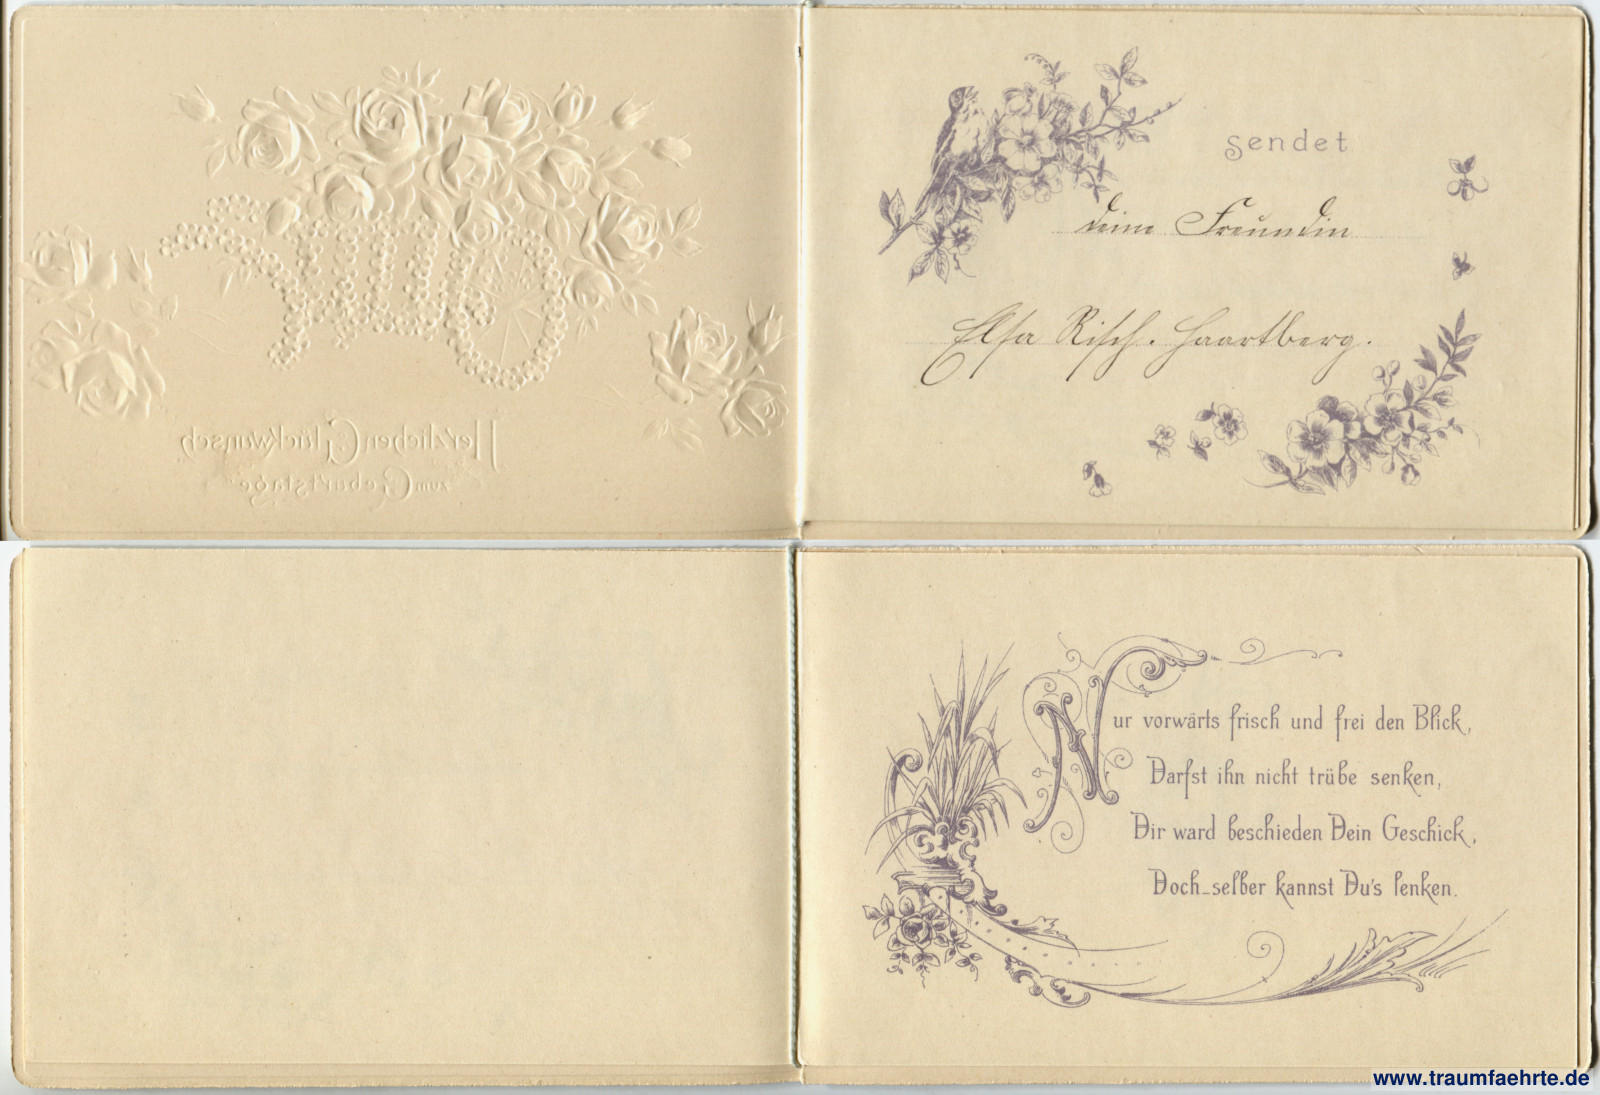 Herzlichen Glückwunsch
zum Geburtstage
sendet
deine Freundin
Elsa Risch. Haartberg.
Nur vorwärts frisch und frei den Blick,
Darfst ihn nicht trübe senken,
Dir ward beschieden Dein Geschick,
Doch selber kannst Du's lenken.
www.traumfaehrte.de